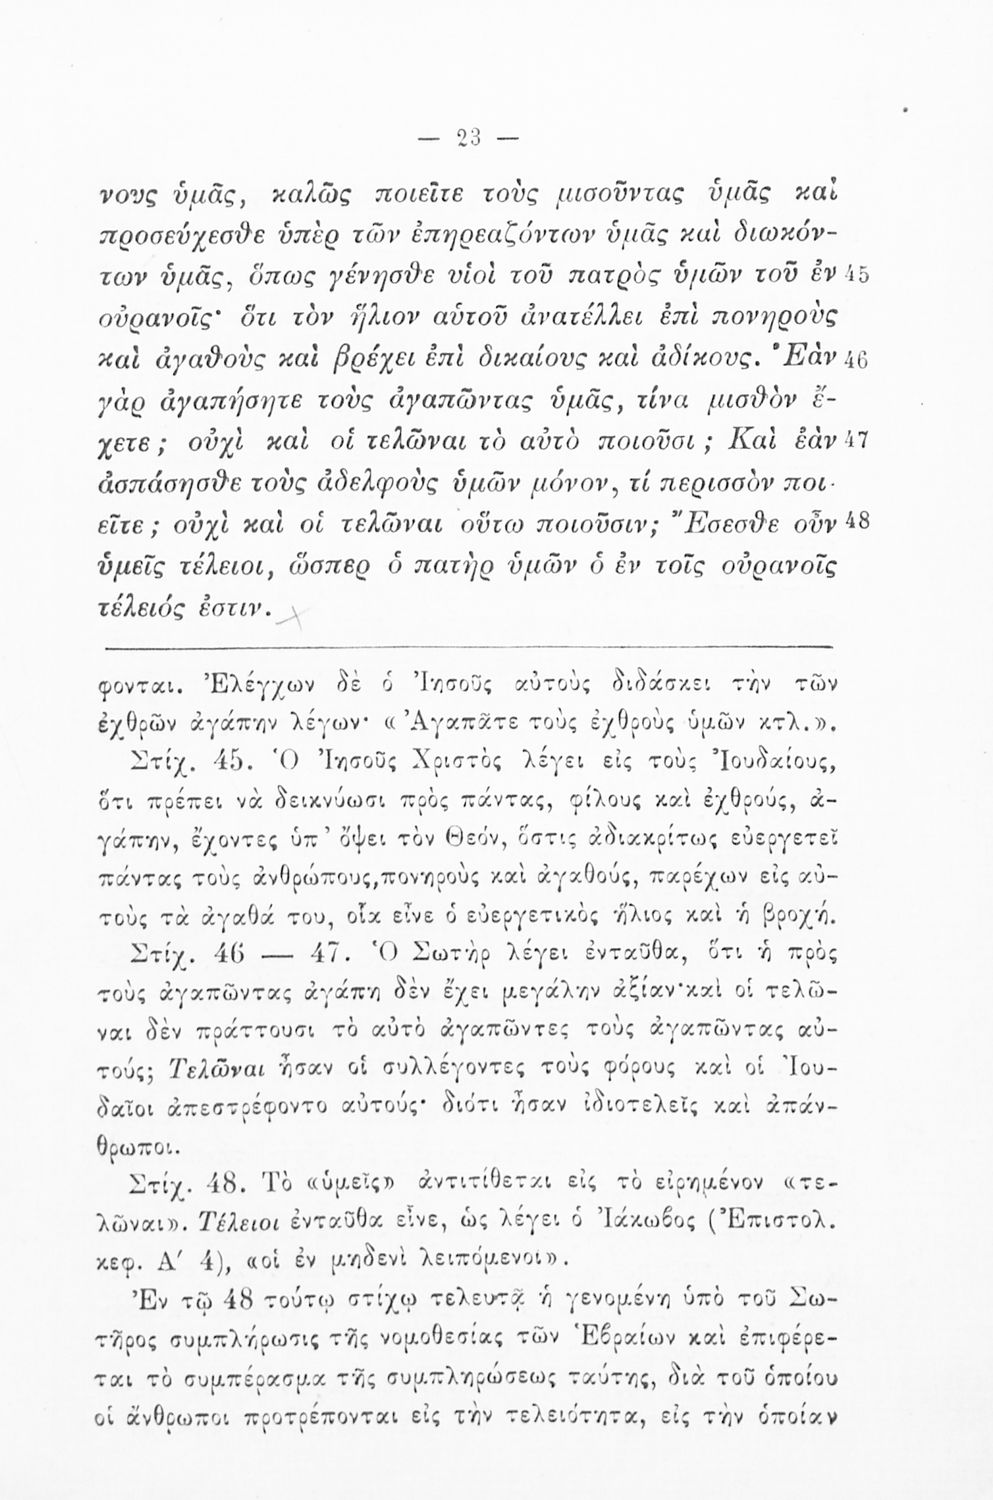 — 23 —
νους ὑμᾶς, καλῶς ποιεῖτε τοὺς μισοῦντας ὑμᾶς καὶ
προσεύχεσθε ὑπὲρ τῶν ἐπηρεαζόντων ὑμᾶς καὶ διωκόν-
των ὑμᾶς, ὅπως γένησθε υἱοὶ τοῦ πατρὸς ὑμῶν τοῦ ἐν 45
οὐρανοῖς· ὅτι τὸν ἥλιον αὑτοῦ ἀνατέλλει ἐπὶ πονηροὺς
καὶ ἀγαθοὺς καὶ βρέχει ἐπὶ δικαίους καὶ ἀδίκους. Ἐὰν 46
γὰρ ἀγαπήσητε τοὺς ἀγαπῶντας ὑμᾶς, τίνα μισθὸν ἔ-
χετε; οὐχὶ καὶ οἱ τελῶναι τὸ αὐτὸ ποιοῦσι; Καὶ ἐὰν 47
ἀσπάσησθε τοὺς ἀδελφοὺς ὑμῶν μόνον, τί περισσὸν ποι-
εῖτε; οὐχὶ καὶ οἱ τελῶναι οὕτω ποιοῦσιν; Ἔσεσθε οὖν 48
ὑμεῖς τέλειοι, ὥσπερ ὁ πατὴρ ὑμῶν ὁ ἐν τοῖς οὐρανοῖς
τέλειός ἐστιν.
φονται. Ἐλέγχων δὲ ὁ Ἰησοῦς αὐτοὺς διδάσκει τὴν τῶν
ἐχθρῶν ἀγάπην λέγων· «Ἀγαπᾶτε τοὺς ἐχθροὺς ὑμῶν κτλ.».
Στίχ. 45. Ὁ Ἰησοῦς Χριστὸς λέγει εἰς τοὺς Ἰουδαίους,
ὅτι πρέπει νὰ δεικνύωσι πρὸς πάντας, φίλους καὶ ἐχθρούς, ἀ-
γάπην, ἔχοντες ὑπ’ ὄψει τὸν Θεόν, ὅστις ἀδιακρίτως εὐεργετεῖ
πάντας τοὺς ἀνθρώπους,πονηροὺς καὶ ἀγαθούς, παρέχων εἰς αὐ-
τοὺς τὰ ἀγαθά του, οἷα εἶνε ὁ εὐεργετικὸς ἥλιος καὶ ἡ βροχή.
Στίχ. 46 — 47. Ὁ Σωτὴρ λέγει ἐνταῦθα, ὅτι ἡ πρὸς
τοὺς ἀγαπῶντας ἀγάπη δὲν ἔχει μεγάλην ἀξίαν·καὶ οἱ τελῶ-
ναι δὲν πράττουσι τὸ αὐτὸ ἀγαπῶντες τοὺς ἀγαπῶντας αὐ-
τούς; Τελῶναι ἦσαν οἱ συλλέγοντες τοὺς φόρους καὶ οἱ Ἰου-
δαῖοι ἀπεστρέφοντο αὐτούς· διότι ἦσαν ἰδιοτελεῖς καὶ ἀπάν-
θρωποι.
Στίχ. 48. Τὸ «ὑμεῖς» ἀντιτίθεται εἰς τὸ εἰρημένον «τε-
λῶναι». Τέλειοι ἐνταῦθα εἶνε, ὡς λέγει ὁ Ἰάκωβος (Ἐπιστολ.
κεφ. Α′ 4), «οἱ ἐν μηδενὶ λειπόμενοι».
Ἐν τῷ 48 τούτῳ στίχῳ τελευτᾷ ἡ γενομένη ὑπὸ τοῦ Σω-
τῆρος συμπλήρωσις τῆς νομοθεσίας τῶν Ἑβραίων καὶ ἐπιφέρε-
ται τὸ συμπέρασμα τῆς συμπληρώσεως ταύτης, διὰ τοῦ ὁποίου
οἱ ἄνθρωποι προτρέπονται εἰς τὴν τελειότητα, εἰς τὴν ὁποίαν